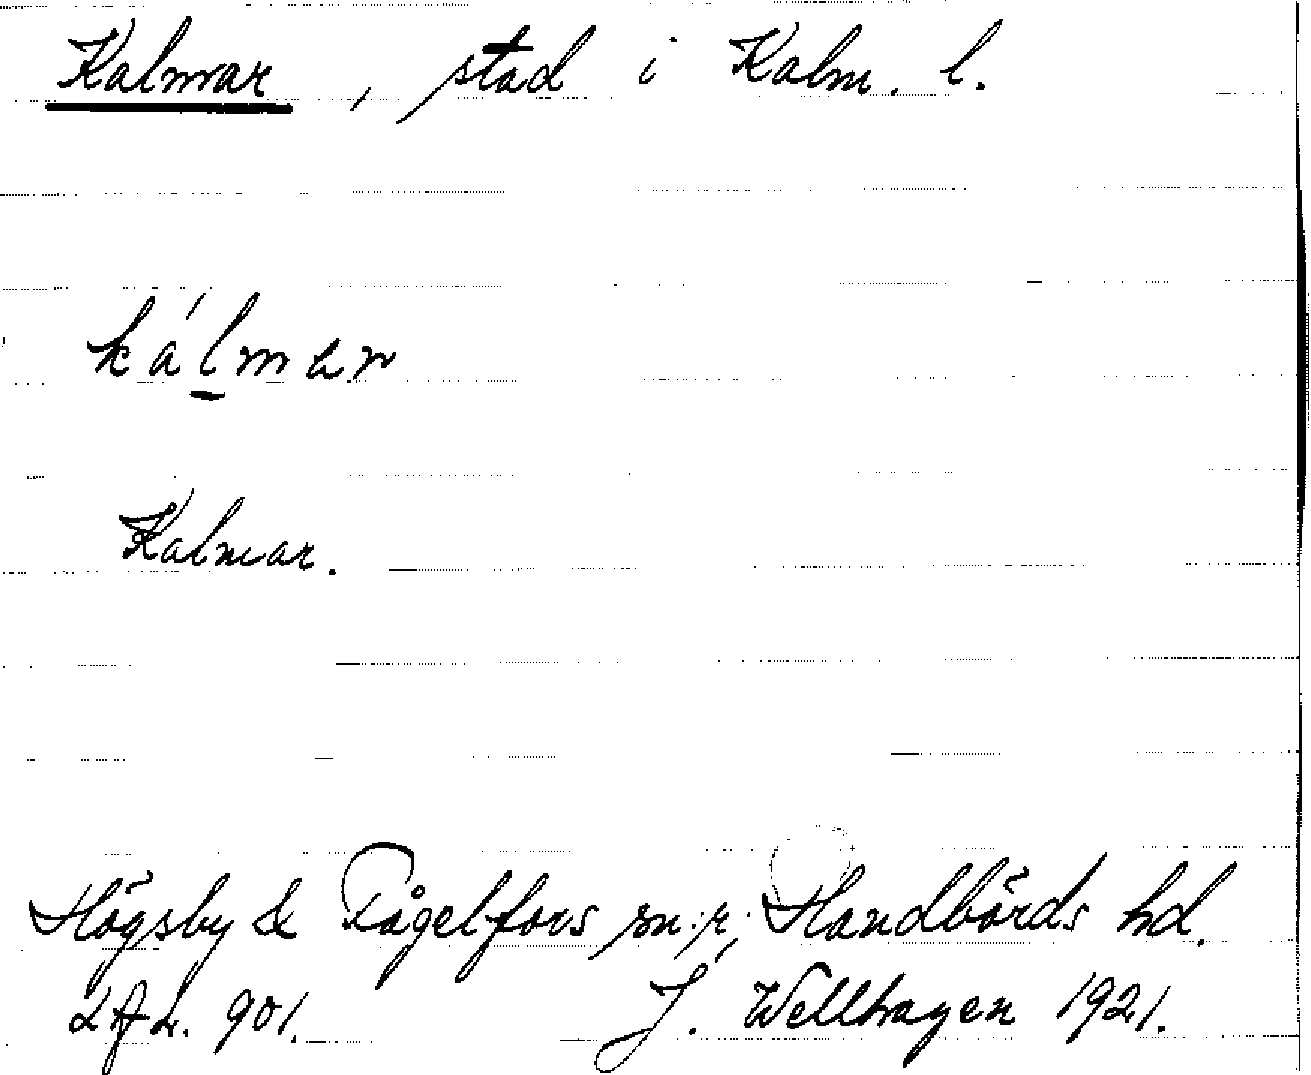 Kalmar, stad i Kalm. l.
kálmar
Kalmar.
Högsby & Fågelfors sn:r, Handbörds hd.
901. J. Wellhagen 1921.